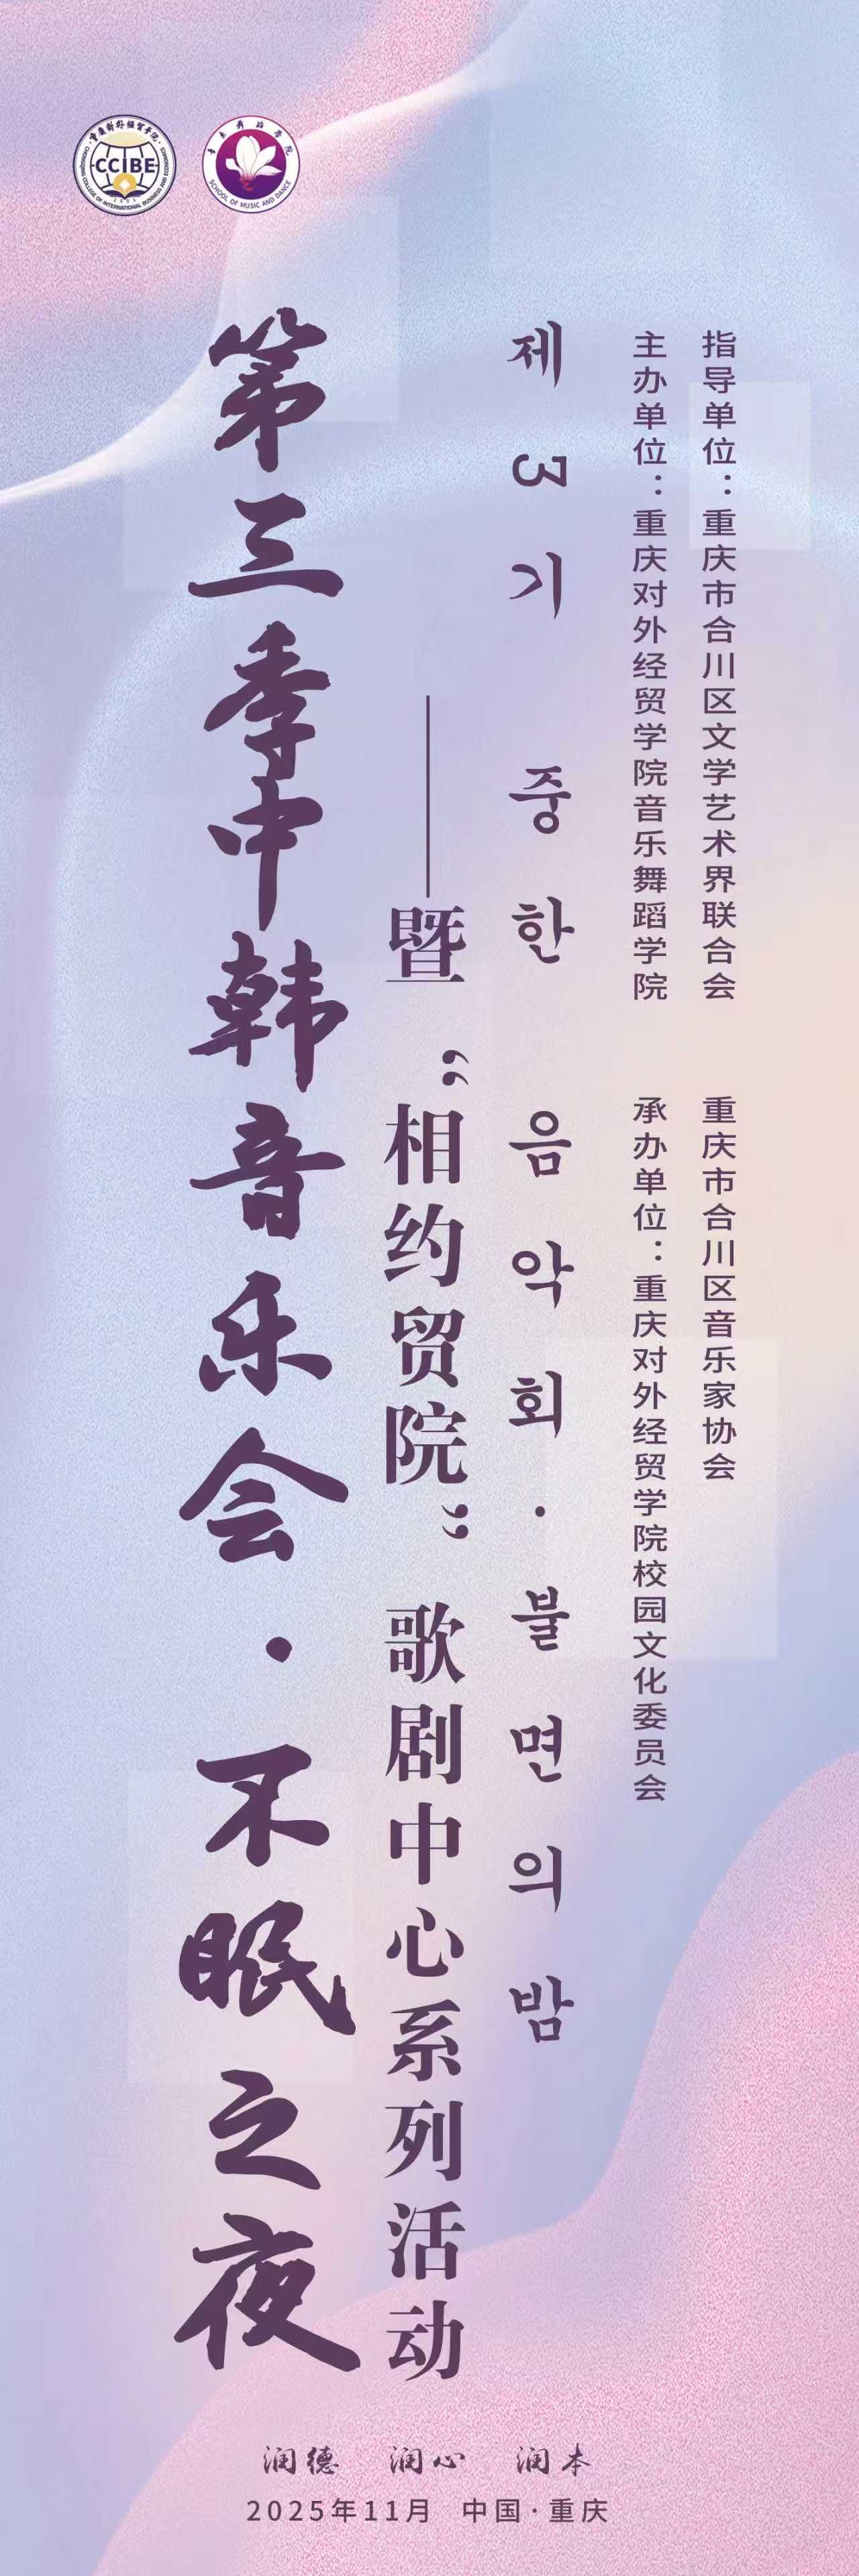 重庆对外经贸学院
CCIBE
CHONGQING COLLEGE OF INTERNATIONAL BUSINESS AND ECONOMICS
2001
音乐舞蹈学院
SCHOOL OF MUSIC AND DANCE
第三季中韩音乐会·不眠之夜
——暨“相约贸院”歌剧中心系列活动
제3기 중한 음악회·불면의밤
主办单位：重庆对外经贸学院音乐舞蹈学院 承办单位：重庆对外经贸学院校园文化委员会
指导单位：重庆市合川区文学艺术界联合会 重庆市合川区音乐家协会
润德 润心 润本
2025年11月 中国·重庆